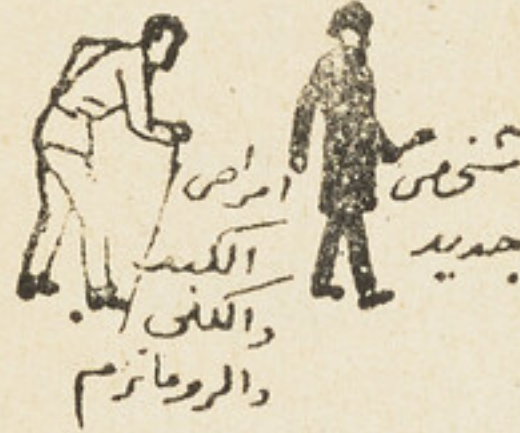 امراض
الكبد
والكلى
والروماتزم
شخص
جديد